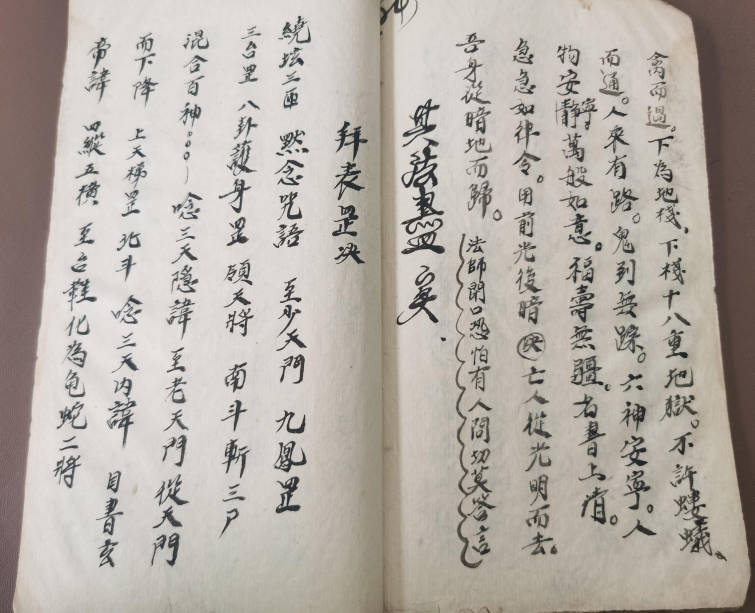 禽而過。下為地棧，下棧十八重地獄。不許螻蟻、
而通。人來有路。鬼到無踪。六神安寧。人
物安靜寧。萬般如意。福壽無疆。右書上清。
急急如律令。用前光後暗 亡人從光明而去。
吾身從暗地而歸。法師閉口恐怕有人問切莫答言
其
拜表罡决
繞坛三匝 黙念咒語 至少天門 九鳳罡
三台罡 八卦護身罡 領天將 南斗斬三尸
混合百神。。。） 唸三天隱諱至老天門從天門
而下降 上天梯罡 北斗 唸三天内諱 目書玄
帝諱 四縱五横 至台鞋化為龟蛇二將